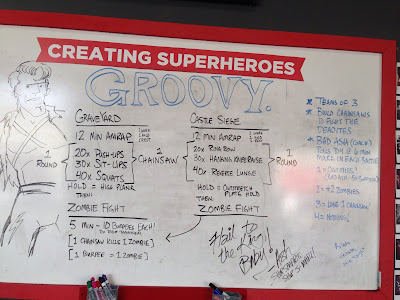 CREATING SUPERHEROES
GROOVY.
GRAVEYARD
12 MIN AMRAP
1 ROUND
20x PUSH-UPS
30x SIT-UPS
40x SQUATS
HOLD = HIGH PLANK
THEN:
ZOMBIE FIGHT
5 MIN - 10 BURPEES EACH!
[1 CHAINSAW KILLS 1 ZOMBIE]
[1 BURPEE = 1 ZOMBIE]
1 CHAINSAW
CASTLE SIEGE
12 MIN AMRAP
20x RING ROW
30x HANGING KNEE RAISE
40x REVERSE LUNGE
1 ROUND
HOLD = OUTSTRETCH
PLATE HOLD
THEN:
ZOMBIE FIGHT
Hail to
the King,
Baby!
* TEAMS OF 3
* BUILD CHAINSAWS
TO FIGHT THE
DEADITES
* BAD ASH (COACH)
2 = +2 ZOMBIES
3 = LOSE 1 CHAINSAW
4 = NOTHING